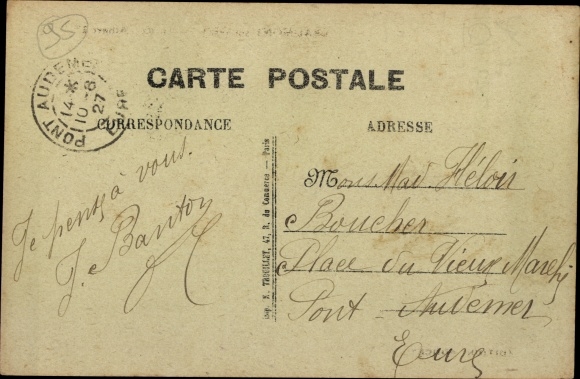 95
CARTE POSTALE
PONT AUDEMER
14 *
10-8
27
EURE
CORRESPONDANCE
ADRESSE
Je pense à vous.
J. Banton
Imp. E. TROUILLET, 47, R. du Commerce - Paris
Mons Mad. Hélois
Boucher
Place du Vieux Marché
Pont Audemer
Eure